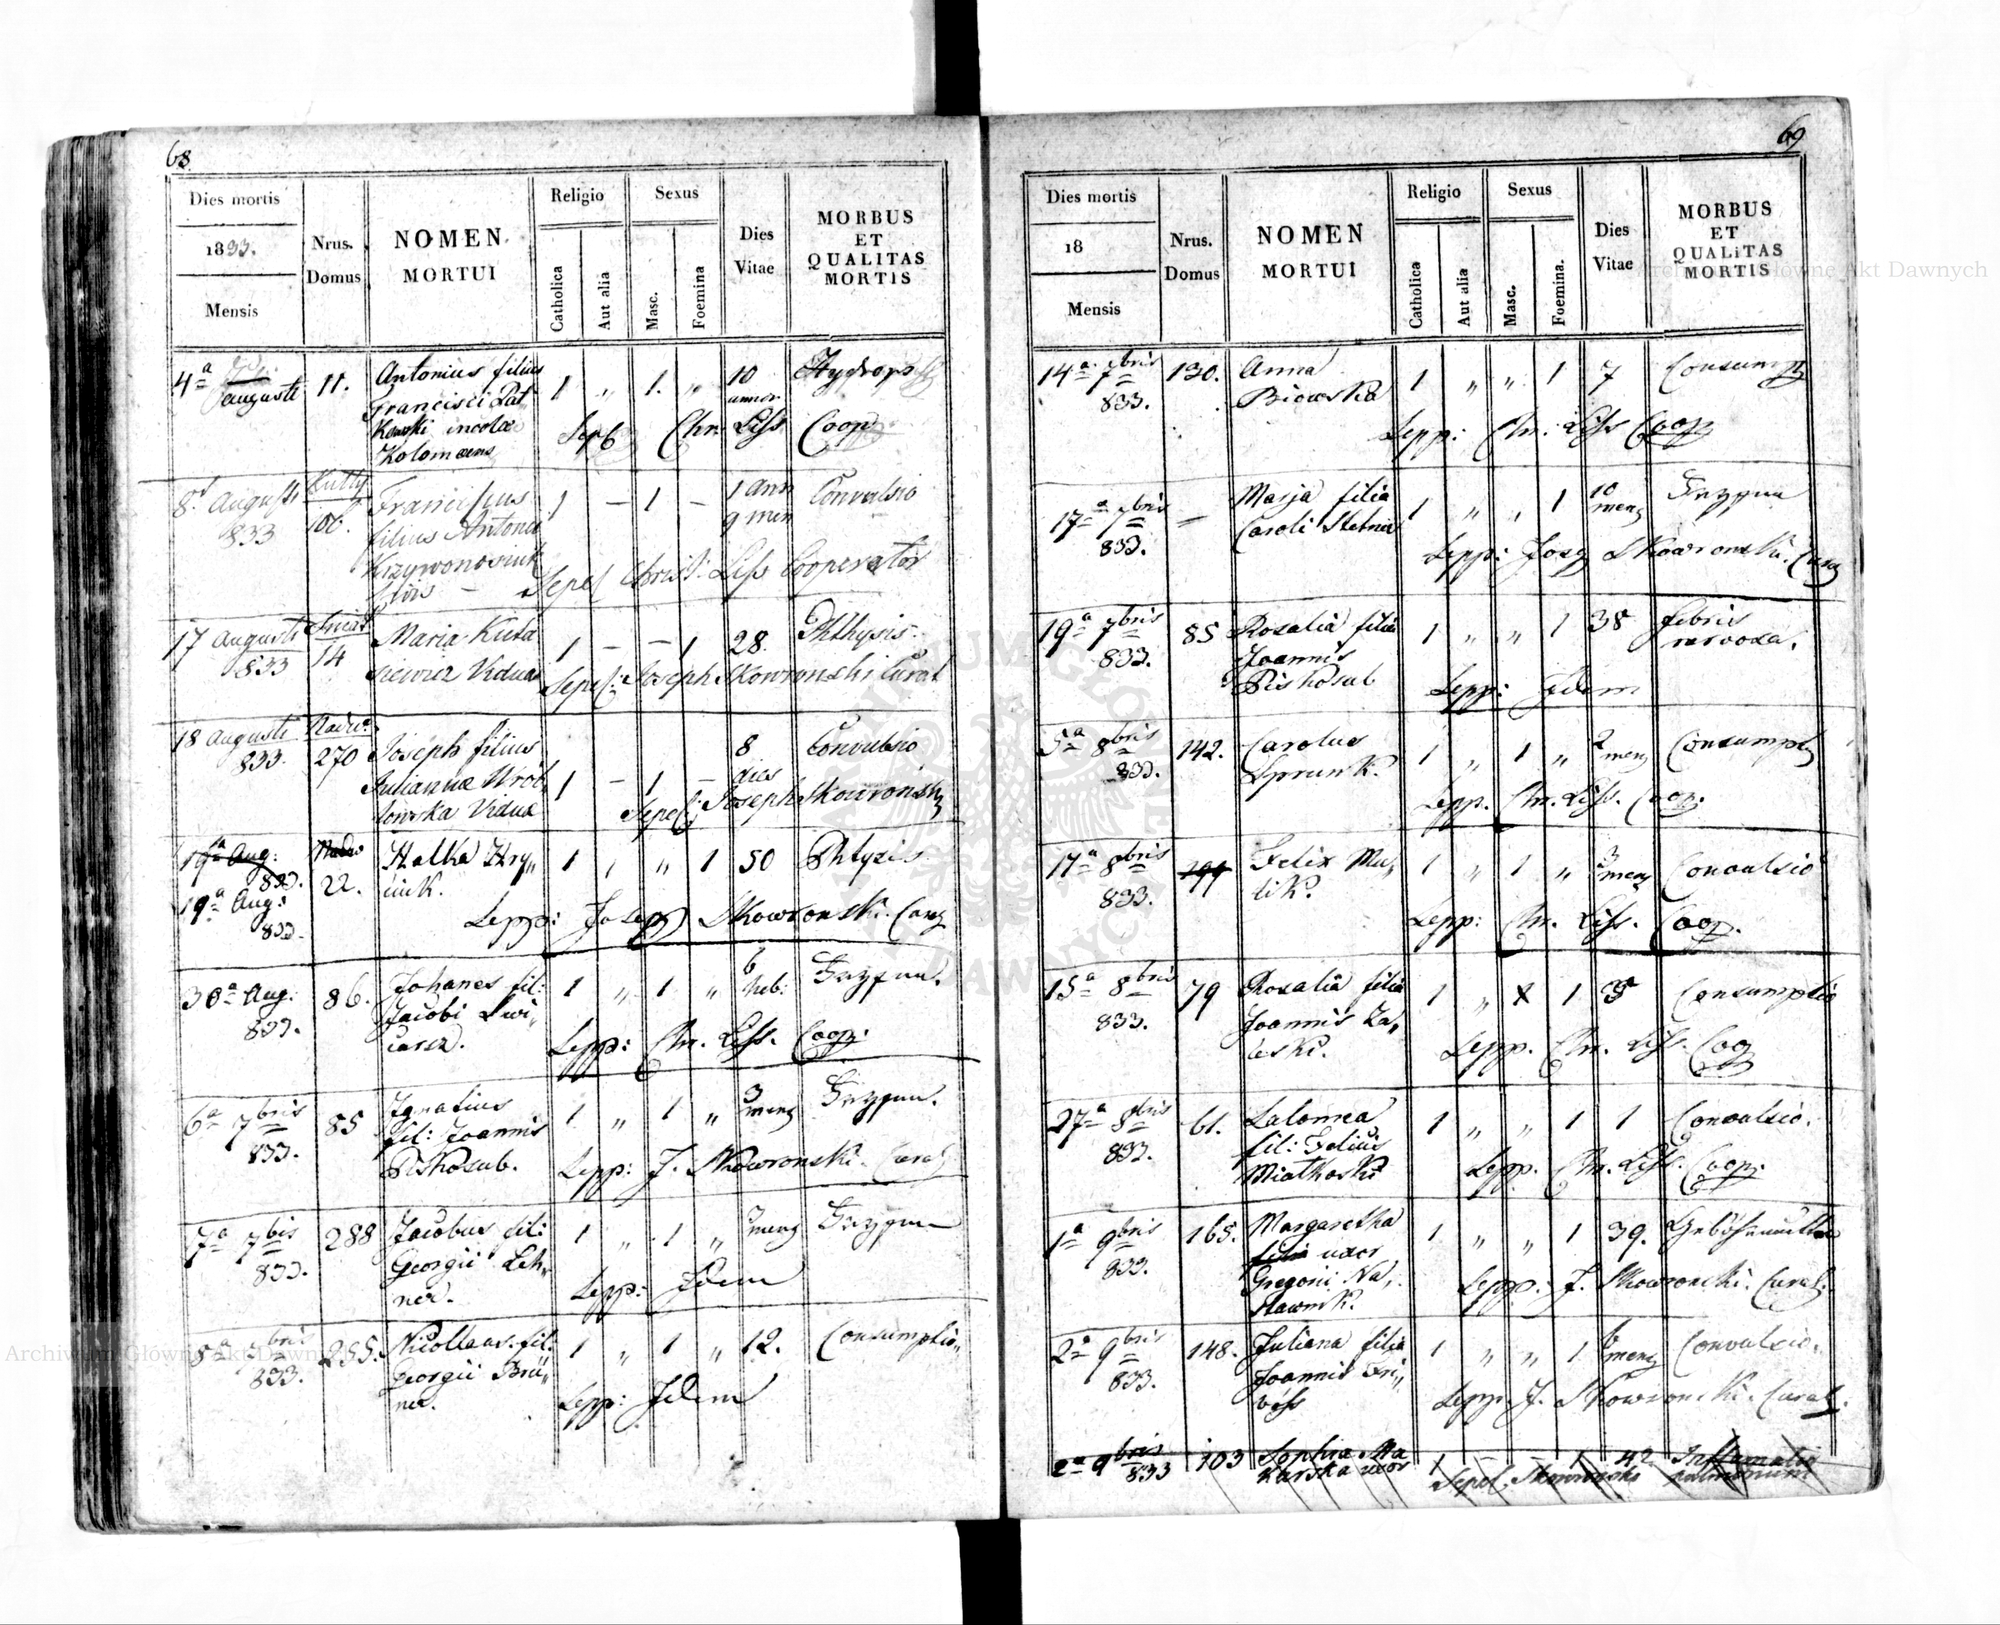 68
Dies mortis
1833.
Mensis
Nrus.
Domus
NOMEN
MORTUI
Religio
Catholica
Aut alia
Sexus
Masc.
Foemina
Dies
Vitae
MORBUS
ET
QUALITAS
MORTIS
4a Augusti 11. Antonius filius 1 „ 1. „ 10 Hydrops
Francisci Pat
kowski incolae annor.
Kolomaens Chr. Liss Coop
8 Augusti Kutty Franciscus 1 – 1 – 1 ann Convulsio
833 106. filius Antonii 9 men
Krzywonosiuk
Sepel Christ: Liss Cooperator
17 Augusti 14 Maria Kuta 1 – – 1 28. Phthysis
833 siewicz Vidua
Sepel: Joseph Skowronski Curat
18 Augusti Nadw. Joseph filius 8 Convulsio
833. 270 Julianna Wrób dies
lowska Vidua 1 – 1 –
Sepel: Joseph Skowroński
19a Aug: Nadw Hatka Hry„ 1 „ „ 1 50 Phtysis
833. 22. niuk.
19a Aug: Sepp: Joseph Skowronski. Curat
833.
30a Aug: 86. Johanes fil: 1 „ 1 „ 6 heb:
833. Jacobi
Sepp: Chr. Liss. Coop:
6a 7bris 85 Ignatius 1 „ 1 „ 3 mens
833. fil: Joannis
Piskosub. Sepp: J. Skowronski. Curat
7a 7bis 288 Jacobus fil: 1 „ 1 „ mens
833. Georgii Leh„
ner. Sepp: Idem
7bris 285. Nicollaus. fil: 1 „ 1 „ 12. Consumptio„
833. Georgii Brü„
ner. Sepp: Idem
69
Dies mortis
18
Mensis
Nrus.
Domus
NOMEN
MORTUI
Religio
Catholica
Aut alia
Sexus
Masc.
Foemina.
Dies
Vitae
MORBUS
ET
QUALITAS
MORTIS
14a 7bris 130. Anna 1 „ „ 1 7 Consumpt
833. Biowska
Sepp: Chr: Liss Coop
17a 7bris – Marja filia 1 „ „ 1 10 mens
833. Caroli
Sepp: Jos Skowronski. Curat
19a 7bris 85 Rosalia filia 1 „ „ 1 38 febris
833. Joannis nervosa.
Piskosub Sepp: Idem
5a 8bris 142. Carolus 1 „ 1 „ 2 mens Consumpt
833. Sprunk.
Sepp. Chr. Liss. Coop.
17a 8bris 199 Felix Mu„ 1 „ 1 „ 3 mens Convulsio
833. lik.
Sepp: Chr. Liss. Coop.
15a 8bris 79 Rosalia filia 1 „ 1 Consumptio
833. Joannis Za„
leski. Sepp. Chr. Liss. Coop
27a 8bris 61. Salomea 1 „ „ 1 1 Convulsio.
833. fil: Felius
Miatkoski Sepp. Chr. Liss. Coop.
1a 9bris 165. Margaretha 1 „ „ 1 39.
833. filia uxor
Gregorii Na„
stawnik. Sepp: J. Skowronski. Curat.
2a 9bris 148. Juliana filia 1 „ „ 1 6 mens Convulsio„
833. Joannis Fri„
Sepp. J. Skowronski. Curat.
2a 9bris 103 Sophia Ma 1 – – 1 42 Inflamatio
833 karska uxor Sepel. Skowronski pulmonum
Archiwum Główne Akt Dawnych
Archiwum Główne Akt Dawnych
ARCHIWUM GŁÓWNE AKT DAWNYCH